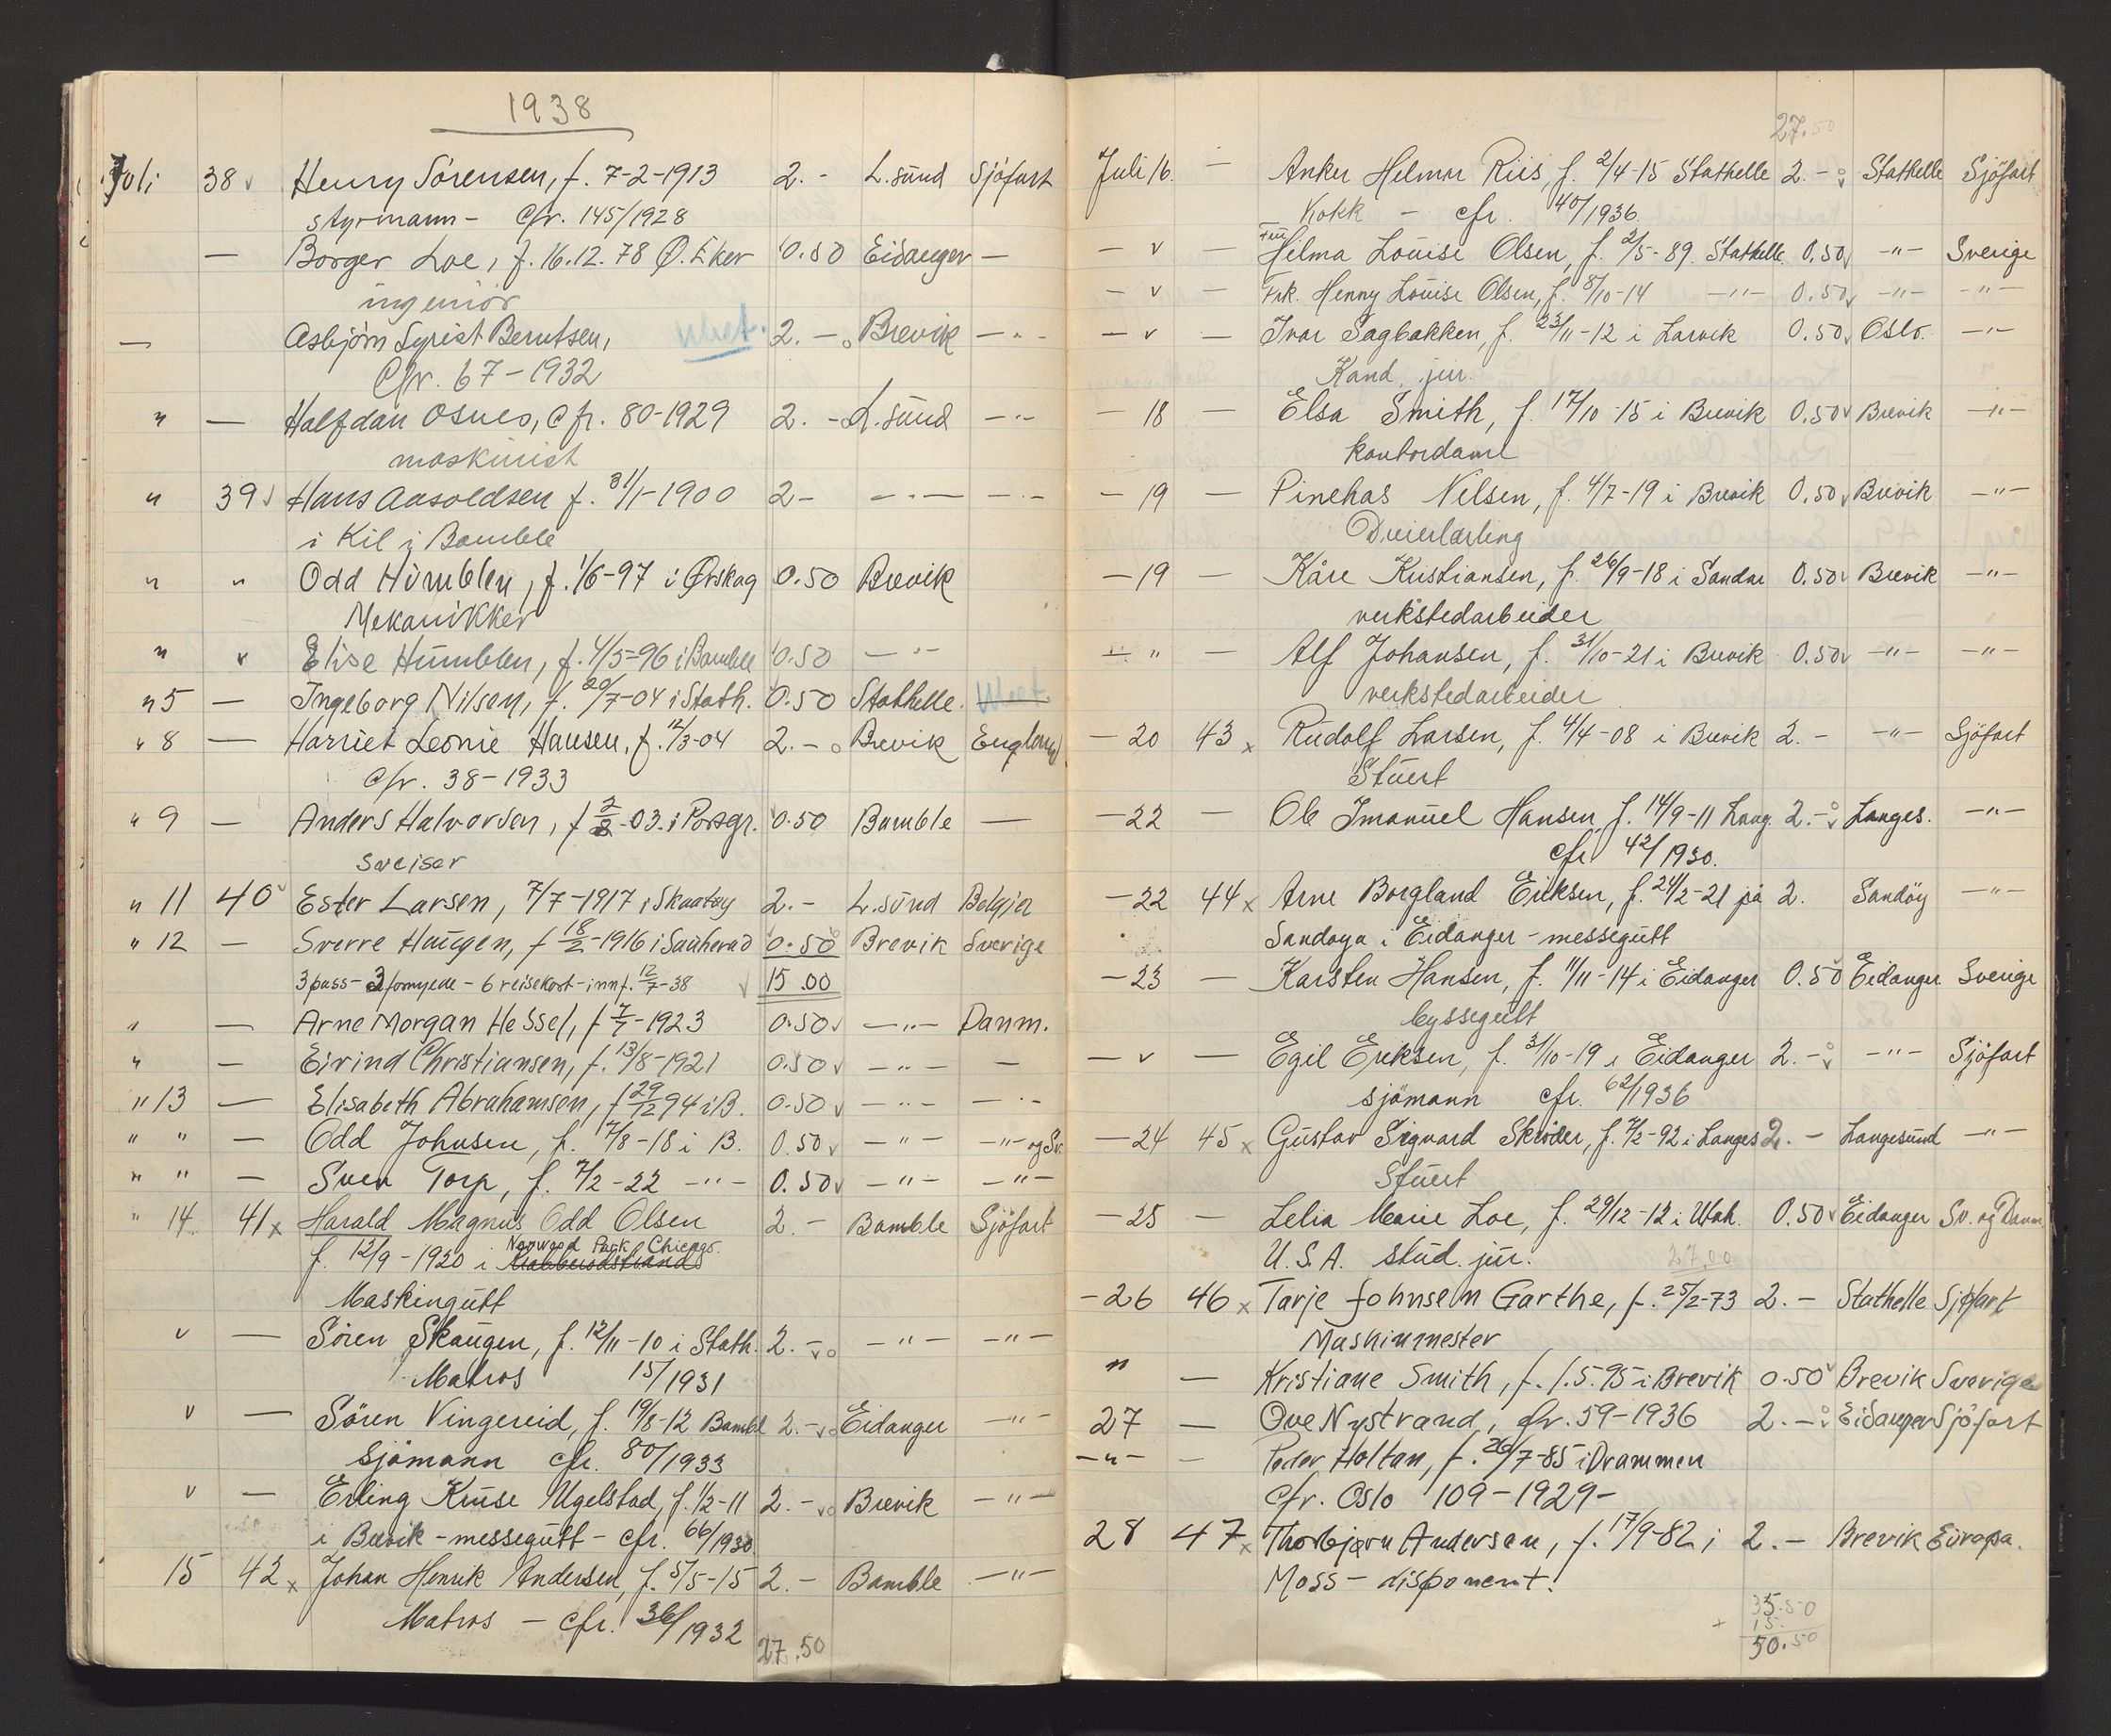 1938
Juli 38 Henry Sörensen, f. 7-2-1913 2.- L.sund Sjöfart
styrmann - cfr. 145/1928
— Borger Loe, f. 16.12.78 Ø. Eker 0.50 Eidanger —
ingeniör
— Asbjörn Syrist Berntsen, 2.- Brevik -"-
Cfr. 67-1932
" — Halfdan Osnes, cfr. 80-1929 2.- L.sund -"-
maskinist
" 39 Hans Aasoldsen f. 31/1-1900 2- -"- -"-
i Kil i Bamble
" " Odd Humblen, f. 1/6-97 i Ørskog 0.50 Brevik
Mekanikker
" " Elise Humblen, f. 4/5-96 i Bamble 0.50 -"-
" 5 — Ingeborg Nilsen, f. 20/7-04 i Stath. 0.50 Stathelle.
" 8 — Harriet Leonie Hansen, f. 12/3-04 2.- Brevik England
cfr. 38-1933
" 9 — Anders Halvorsen, f 2/8-03. i Porsgr. 0.50 Bamble —
sveiser
" 11 40 Ester Larsen, 7/7-1917 i Skaatøy 2.- L.sund Belgia
" 12 — Sverre Haugen, f 18/2-1916 i Sauherad 0.50 Brevik Sverige
3 pass - 3 fornyede - 6 reisekort - innf. 12/7-38 15.00
" — Arne Morgan Hessel, f 7/7-1923 0.50 -"- Danm.
" — Eivind Christiansen, f. 13/8-1921 0.50 -"- —
" 13 — Elisabeth Abrahamsen, f 29/12 94 i B. 0.50 -"- -"-
" " — Odd Johnsen, f. 7/8-18 i B. 0.50 -"- -"- og Sv.
" " — Sven Torp, f. 7/2-22 -"- 0.50 -"- -"-
" 14 41 x Harald Magnus Odd Olsen 2.- Bamble Sjöfart
Norwood Park Chicago.
f. 12/9-1920 i
Maskingutt
" — Sören Skaugen, f. 12/11-10 i Stath. 2.- -"- -"-
Matros 15/1931
" — Sören Vingereid, f. 19/8-12 Bambl 2.- Eidanger -"-
sjömann cfr. 80/1933
" — Erling Kruse Ugelstad, f. 1/2-11 2.- Brevik -"-
i Brevik - messegutt - cfr. 66/1930
15 42 x Johan Henrik Andersen, f. 5/5-15 2.- Bamble -"-
Matros - cfr. 36/1932
27.50
27.50
Juli 16. — Anker Helmar Riis, f. 2/4-15 Stathelle 2.- Stathelle Sjöfart
Kokk - cfr. 40/1936.
- " — Fru Hilma Louise Olsen, f. 2/5-89. Stathelle 0.50 -"- Sverige
- " — Frk. Henny Louise Olsen, f. 8/10-14 -"- 0.50 -"- -"-
- " — Ivar Sagbakken, f. 23/11-12 i Larvik 0.50 Oslo. -"-
Kand. jur.
- 18 — Elsa Smith, f. 17/10-15 i Brevik 0.50 Brevik -"-
kontordame
- 19 — Pinehas Nilsen, f. 4/7-19 i Brevik 0.50 Brevik -"-
Dreierlærling
- 19 — Kåre Kristiansen, f. 26/9-18 i Sandar 0.50 Brevik -"-
verkstedarbeider
- " — Alf Johansen, f. 31/10-21 i Brevik 0.50 -"- -"-
verkstedarbeider
- 20 43 x Rudolf Larsen, f. 4/4-08 i Brevik 2.- -"- Sjöfart
Stuert
- 22 — Ole Imanuel Hansen, f. 14/9-11 Lang. 2.- Langes. -"-
cfr 42/1930.
- 22 44 x Arne Borgland Eriksen, f. 24/2-21 på 2. Sandöy -"-
Sandøya i Eidanger - messegutt
- 23 — Karsten Hansen, f. 11/11-14 i Eidanger 0.50 Eidanger Sverige
byssegutt
- " — Egil Eriksen, f. 31/10-19 i Eidanger 2.- -"- Sjöfart
sjömann cfr. 62/1936
- 24 45 x Gustav Sigvard Skröder, f. 7/2-92 i Langes 2.- Langesund -"-
Stuert
- 25 — Lelia Marie Loe, f. 29/12-12 i Utah. 0.50 Eidanger Sv. og Danm.
U.S.A. stud. jur. 27.00
- 26 46 x Tarje Johnsen Garthe, f. 25/2-73 2.- Stathelle Sjøfart
Maskinmester
" — Kristiane Smith, f. 1.5.95 i Brevik 0.50 Brevik Sverige
27 — Ove Nystrand, cfr. 59-1936 2.- Eidanger Sjöfart
-"- — Peder Holtan, f. 26/7-85 i Drammen
cfr. Oslo 109-1929-
28 47 x Thorbjørn Andersen, f. 17/9-82 i 2.- Brevik Europa.
Moss - disponent.
35.50
+ 15.
50.50